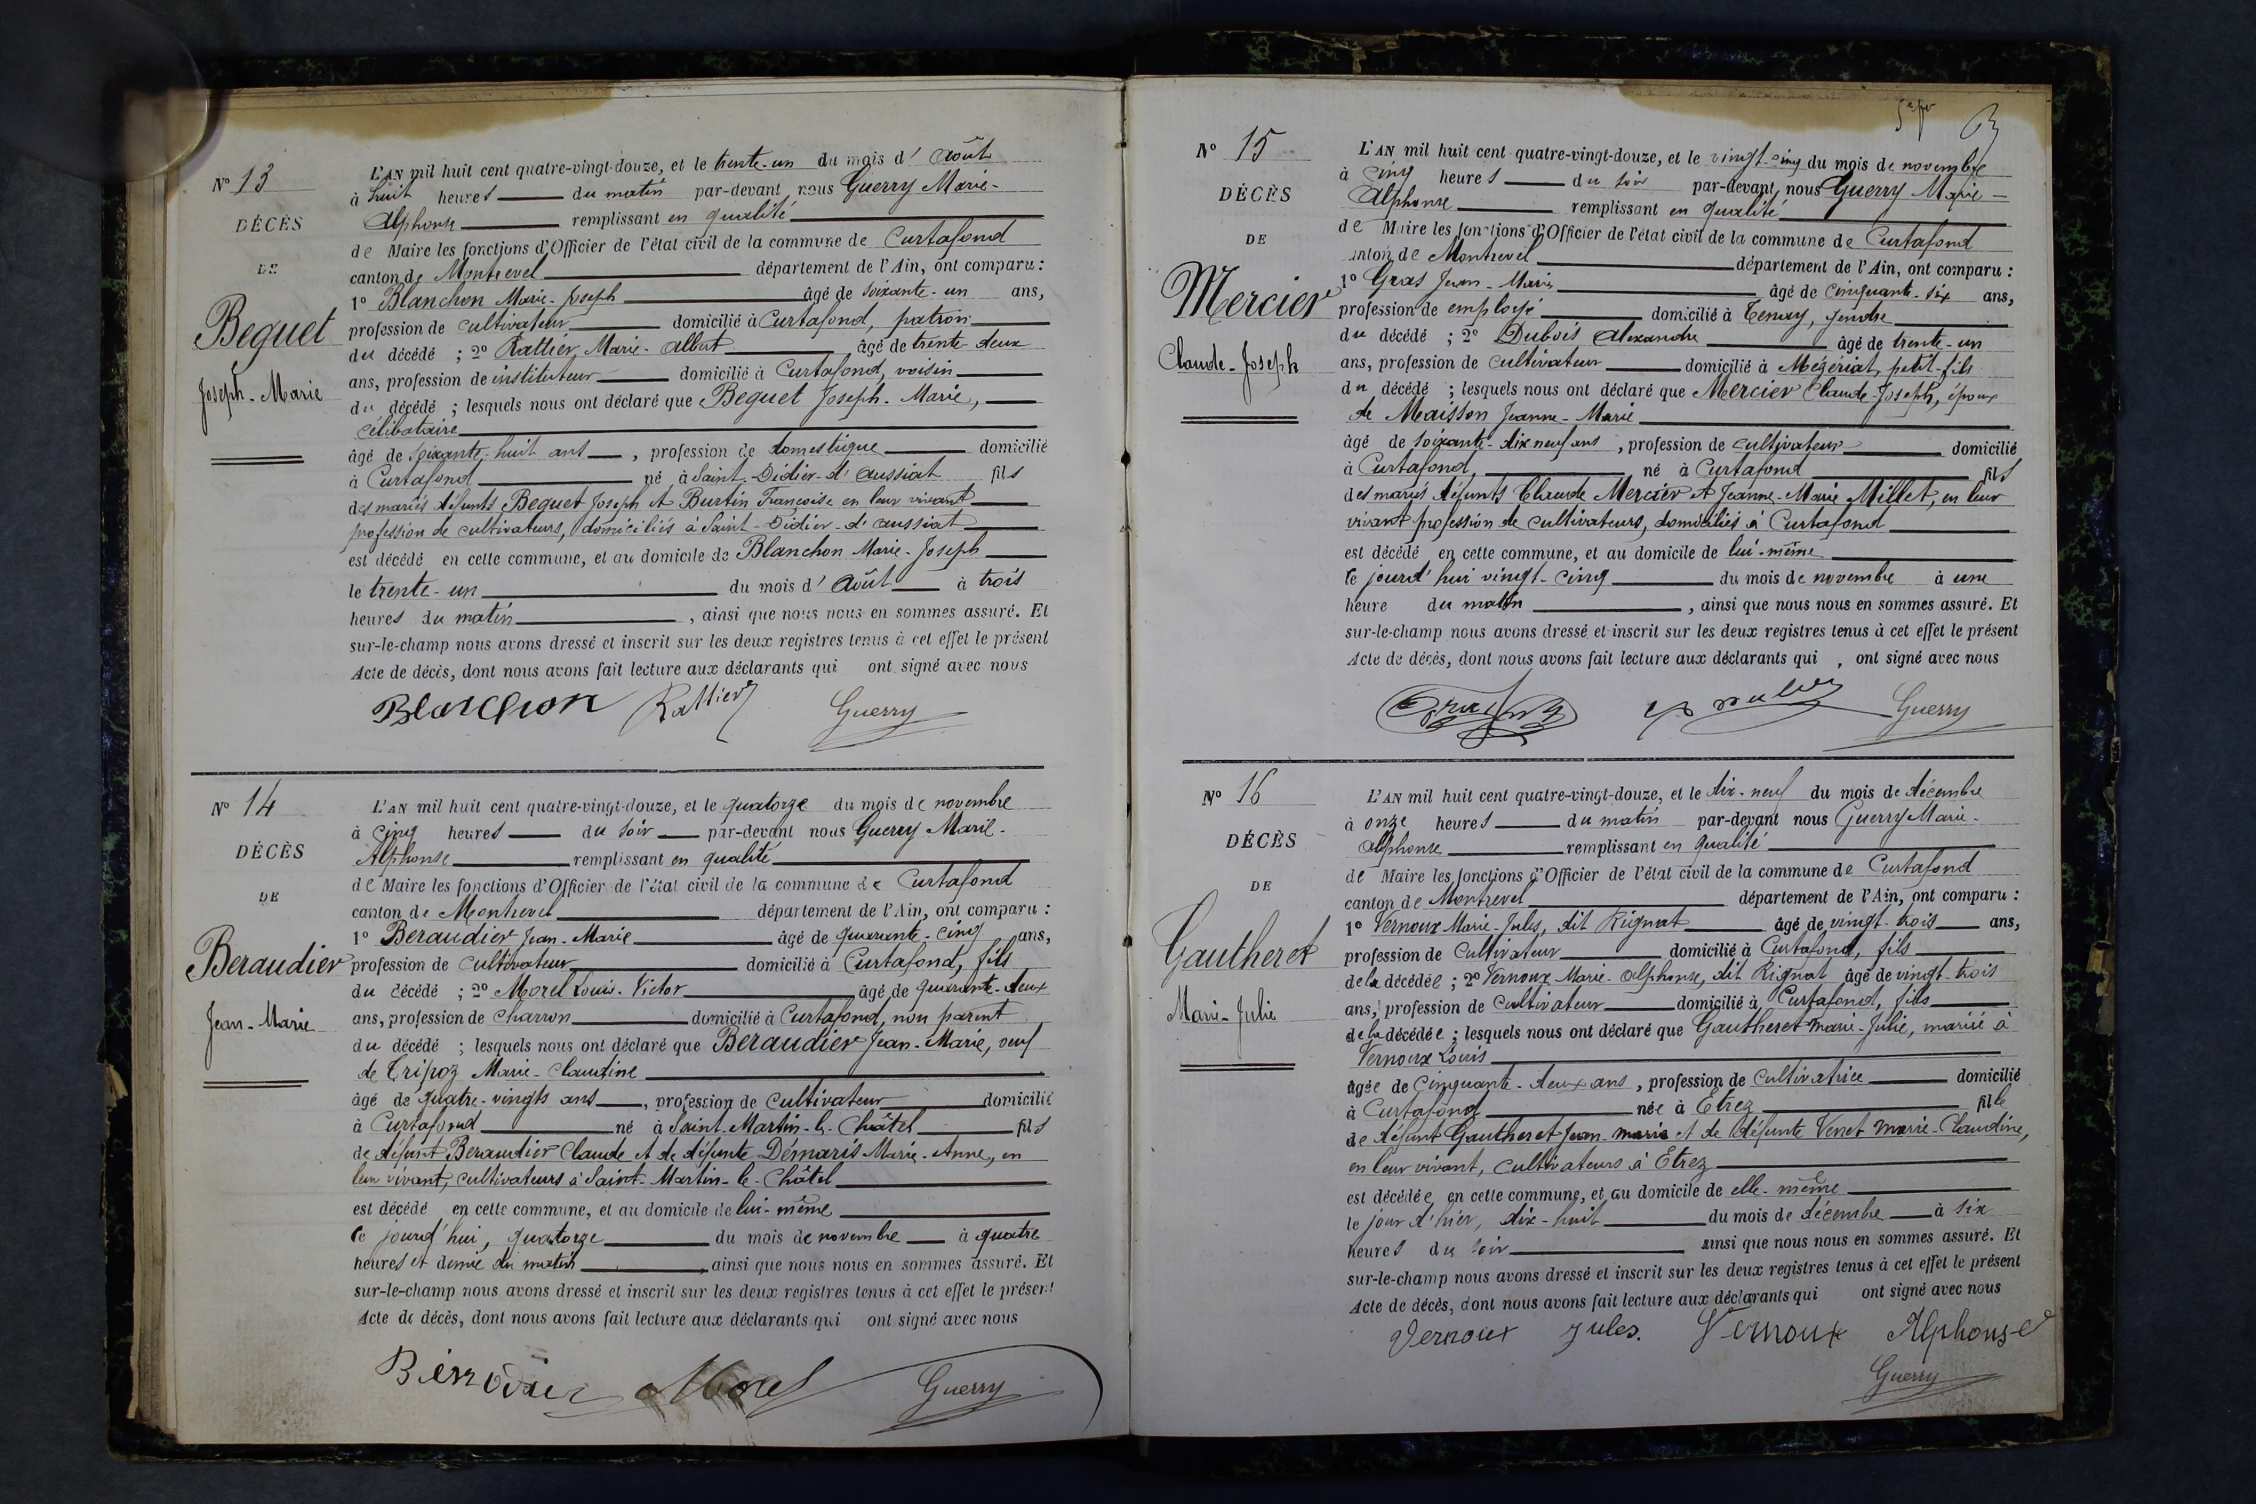 N° 13
DÉCÈS
DE
Beguet
Joseph-Marie
L'AN mil huit cent quatre-vingt-douze, et le trente-un du mois d'Août
à huit heures du matin par-devant nous Guerry Marie-
Alphonse remplissant en qualité
de Maire les fonctions d'Officier de l'état civil de la commune de Curtafond
canton de Montrevel département de l'Ain, ont comparu :
1° Blanchon Marie-Joseph âgé de soixante-un ans,
profession de cultivateur domicilié à Curtafond, patron
du décédé ; 2° Rattier Marie-Albert âgé de trente-deux
ans, profession de instituteur domicilié à Curtafond, voisin
du décédé ; lesquels nous ont déclaré que Beguet Joseph-Marie,
célibataire
âgé de soixante-huit ans, profession de domestique domicilié
à Curtafond né à Saint-Didier-d'Aussiat fils
des mariés défunts Beguet Joseph et Burtin Françoise en leur vivant
profession de cultivateurs, domiciliés à Saint-Didier-d'Aussiat
est décédé en cette commune, et au domicile de Blanchon Marie-Joseph
le trente-un du mois d'Août à trois
heures du matin, ainsi que nous nous en sommes assuré. Et
sur-le-champ nous avons dressé et inscrit sur les deux registres tenus à cet effet le présent
Acte de décès, dont nous avons fait lecture aux déclarants qui ont signé avec nous
Blanchon Rattier Guerry
N° 14
DÉCÈS
DE
Beraudier
Jean-Marie
L'AN mil huit cent quatre-vingt-douze, et le quatorze du mois de novembre
à cinq heures du soir par-devant nous Guerry Marie-
Alphonse remplissant en qualité
de Maire les fonctions d'Officier de l'état civil de la commune de Curtafond
canton de Montrevel département de l'Ain, ont comparu :
1° Beraudier Jean-Marie âgé de quarante-cinq ans,
profession de cultivateur domicilié à Curtafond, fils
du décédé ; 2° Morel Louis-Victor âgé de quarante-deux
ans, profession de charron domicilié à Curtafond, non parent
du décédé ; lesquels nous ont déclaré que Beraudier Jean-Marie, veuf
de Tripoz Marie-Claudine
âgé de quatre-vingts ans, profession de Cultivateur domicilié
à Curtafond né à Saint-Martin-le-Châtel fils
de défunt Beraudier Claude et de défunte Démaris Marie-Anne, en
leur vivant, cultivateurs à Saint-Martin-le-Châtel
est décédé en cette commune, et au domicile de lui-même
le jourd'hui, quatorze du mois de novembre à quatre
heures et demie du matin, ainsi que nous nous en sommes assuré. Et
sur-le-champ nous avons dressé et inscrit sur les deux registres tenus à cet effet le présent
Acte de décès, dont nous avons fait lecture aux déclarants qui ont signé avec nous
Morel Guerry
N° 15
DÉCÈS
DE
Mercier
Claude-Joseph
L'AN mil huit cent quatre-vingt-douze, et le vingt-cinq du mois de novembre
à cinq heures du soir par-devant nous Guerry Marie-
Alphonse remplissant en qualité
de Maire les fonctions d'Officier de l'état civil de la commune de Curtafond
canton de Montrevel département de l'Ain, ont comparu :
1° Gras Jean-Marie âgé de cinquante-six ans,
profession de employé domicilié à Tenay, gendre
du décédé ; 2° Dubois Alexandre âgé de trente-un
ans, profession de cultivateur domicilié à Mézériat, petit-fils
du décédé ; lesquels nous ont déclaré que Mercier Claude-Joseph, époux
de Maisson Jeanne-Marie
âgé de soixante-dix neuf ans, profession de cultivateur domicilié
à Curtafond, né à Curtafond fils
des mariés défunts Claude Mercier et Jeanne-Marie Millet, en leur
vivant profession de cultivateurs, domiciliés à Curtafond
est décédé en cette commune, et au domicile de lui-même
le jourd'hui vingt-cinq du mois de novembre à une
heure du matin, ainsi que nous nous en sommes assuré. Et
sur-le-champ nous avons dressé et inscrit sur les deux registres tenus à cet effet le présent
Acte de décès, dont nous avons fait lecture aux déclarants qui, ont signé avec nous
Guerry
N° 16
DÉCÈS
DE
Gautheret
Marie-Julie
L'AN mil huit cent quatre-vingt-douze, et le dix-neuf du mois de décembre
à onze heures du matin par-devant nous Guerry Marie-
Alphonse remplissant en qualité
de Maire les fonctions d'Officier de l'état civil de la commune de Curtafond
canton de Montrevel département de l'Ain, ont comparu :
1° Vernoux Marie-Jules, dit Rignat âgé de vingt-trois ans,
profession de Cultivateur domicilié à Curtafond, fils
de la décédée ; 2° Vernoux Marie-Alphonse, dit Rignat âgé de vingt-trois
ans, profession de Cultivateur domicilié à Curtafond, fils
de la décédée ; lesquels nous ont déclaré que Gautheret Marie-Julie, mariée à
Vernoux Louis
âgée de cinquante-deux ans, profession de Cultivatrice domicilié
à Curtafond née à Etrez fille
de défunt Gautheret Jean-Marie et de défunte Venet Marie-Claudine,
en leur vivant, cultivateurs à Etrez
est décédée en cette commune, et au domicile de elle-même
le jour d'hier, dix-huit du mois de décembre à six
heures du soir ainsi que nous nous en sommes assuré. Et
sur-le-champ nous avons dressé et inscrit sur les deux registres tenus à cet effet le présent
Acte de décès, dont nous avons fait lecture aux déclarants qui ont signé avec nous
Vernoux Jules. Vernoux Alphonse
Guerry